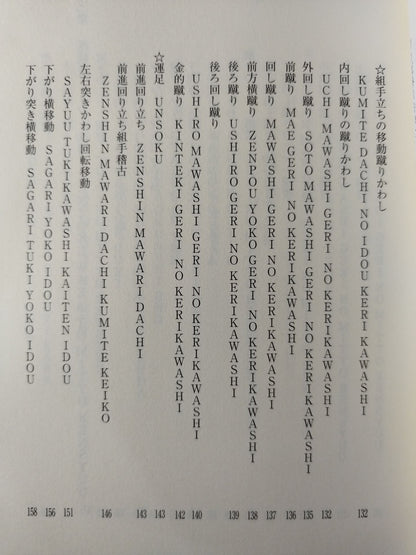 ☆組手立ちの移動蹴りかわし
KUMITE DACHI NO IDOU KERI KAWASHI 132
内回し蹴りの蹴りかわし
UCHI MAWASHI GERI NO KERIKAWASHI 132
外回し蹴り SOTO MAWASHI GERI NO KERIKAWASHI 135
前蹴り MAE GERI NO KERIKAWASHI 136
回し蹴り MAWASHI GERI NO KERIKAWASHI 137
前方横蹴り ZENPOU YOKO GERI NO KERIKAWASHI 138
後ろ蹴り USHIRO GERI NO KERIKAWASHI 139
後ろ回し蹴り
USHIRO MAWASHI GERI NO KERIKAWASHI 140
金的蹴り KINTEKI GERI NO KERIKAWASHI 142
☆運足 UNSOKU 143
前進回り立ち ZENSHIN MAWARI DACHI 143
前進回り立ち組手稽古
ZENSHIN MAWARI DACHI KUMITE KEIKO 146
左右突きかわし回転移動
SAYUU TUKIKAWASHI KAITEN IDOU 151
下がり横移動 SAGARI YOKO IDOU 156
下がり突き横移動 SAGARI TUKI YOKO IDOU 158